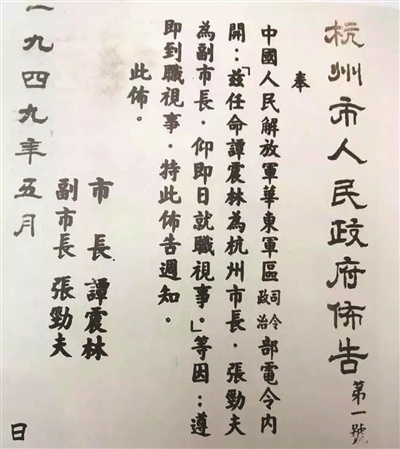 杭州市人民政府佈告 第一號
奉
中國人民解放軍華東軍區司令政治部電令内
開：「兹任命譚震林為杭州市長．張勁夫
為副市長．仰即日就職視事。」等因：遵
即到職視事．特此佈告週知。
此佈。
市長 譚震林
副市長 張勁夫
一九四九年五月 日